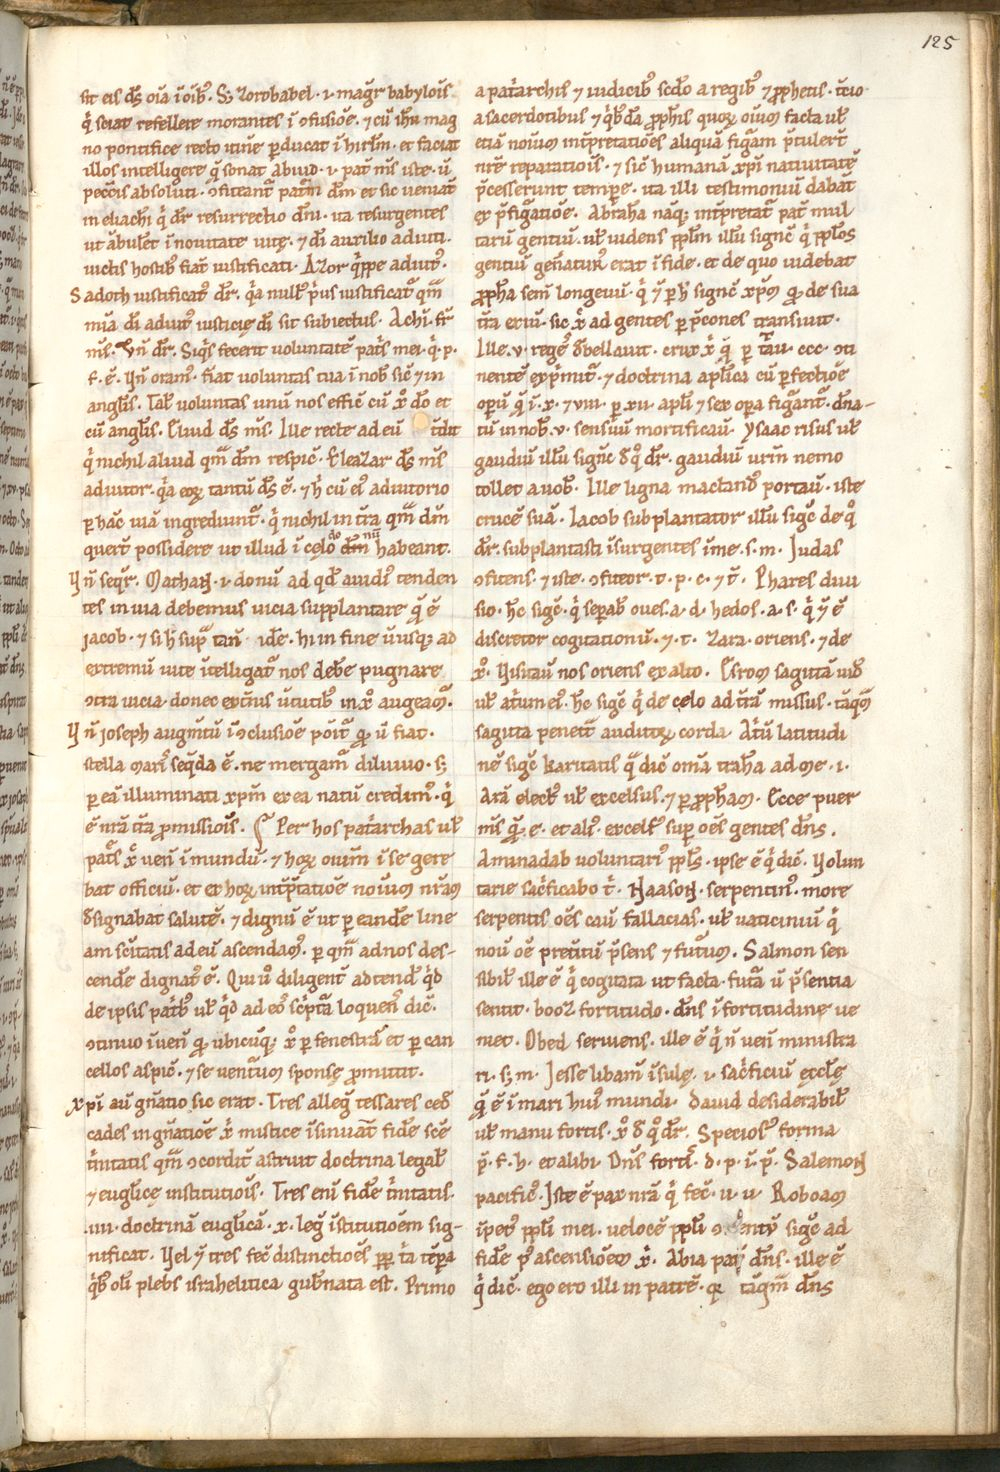 125
sit eis ds̄ oīa ī oīb᷒. S; Zorobabel · ı · magr̄ babyloīs
q̇ sciat refellere morantes ī ɔfusiōe. ⁊ cū ih̄u mag
no pontifice recto itiñe ꝑducat ī hirl̄m · et faciat
illos intelligere q̄ sonat abiud · ı · pat̄ m̄s iste · ū
peccīs absoluti · ɔfiteant᷑ patrē dm̄ et sic veniāt
in eliachī q̇ dr̄ resurrectio dn̄i · ita resurgentes
ut ābulēt ī novitate vitę · ⁊ dī auxilio adiuti ·
victis hostib᷒ fiāt iustificati · Azor q̇ppe adiut᷒.
Sadoth iustificat᷒ dr̄ · q̇a null᷒ p̓us iustificat᷑ qm̄
mīa dī adiut᷒ iusticię dī sit subiectus · Achī · fr̄
m̄s · Vn̄ dr̄. Siq̇s fecerit voluntatē pat̓s mei · q̇ · p ·
f · ē · Vn̄ oram᷒ · fiat voluntas tua ī nob᷒ sic̄ ⁊ in
angl̄is. Tal᷒ voluntas unū nos effic̄ cū xō dō et
cū angl̄is. Eliud ds̄ m̄s. Ille recte ad eū tēdit
q̇ nichil aliud qm̄ dm̄ respic̄ · Eleazar ds̄ m̄s
adiutor · q̇a eoꝝ tantū ds̄ ē · ⁊ h̄ cū ei᷒ adiutorio
ꝑ hāc viā ingrediunt᷑ · q̇ nichil in t̄ra qm̄ dm̄
querūt possidere ut illud ī celo dm̄ habeant.
Vn̄ seqr̄. Mathan · ı · donū ad qd̄ avidi᷒ tenden
tes in via debemus vicia supplantare q̄ ē
jacob · ⁊ si h̄ sup̄ tan̄ idē · hi in fine ūiusq; ad
extremū vite ītelligat᷑ nos debe᷒ pugnare
ɔtra vicia · donec extīus ūtutib᷒ in xō augeam᷒.
Vn̄ joseph augmītū ī ɔclusiōe pōit᷑ ꝙ ū fiat ·
stella maris seqn̄da ē · ne mergam᷑ diluvio · s;
ꝑ eā illuminati xpm̄ ex ea natū credim᷒ · q̇
ē nr̄a t̄ra ꝓmissiōis. Per hos pat̓archas ul᷒
pat̄s xō ven̄ ī mundū · ⁊ hoꝝ oīum ī se gere
bat officiū · et ex hoꝝ int̓p̄tatiōe noīum nr̄am
designabat salutē · ⁊ dignū ē ut ꝑ eandē line
am sc̄itatis ad eū ascendam᷒ · ꝑ qm̄ ad nos des-
cendē dignat᷒ ē. Qui ū diligent᷒ adtend᷒ q̇d
de ipsis pat̓b᷒ ul᷒ q̇d ad eos sc̓pt̄a loquent᷒ dic̄ ·
ɔtinuo īven̄ ꝙ ubicūq; xō ꝑ fenestrā et ꝑ can
cellos aspic̄ · ⁊ se ventuꝝ sponsę ꝓmittit.
xpī aū gn̄atio sic erat. Tres alleḡ tessares ced
cades in gn̄atiōe xī mistice īsinuāt fidē sc̄e
t̓nitatis qm̄ ɔcordit᷒ astruit doctrina legal᷒
⁊ eugl̄icę institutiōis. Tres enī fidē t̓nitatis ·
.IIII · doctrinā eugl̄icā · x · leḡ īstitutiōem sig-
nificat. Vel ⁊ tres fec̄ distinctiōes ꝓp̄ t̓a tēpa
q̇b᷒ oli plebs israhelitica gub̄nata est. Primo
a pat̓archis ⁊ iudicib᷒ scd̄o a regib᷒ ⁊ ꝓphetis · tc̄io
a sacerdotibus ⁊ q̇bdā ꝓph̄is quoꝝ oīum facta ul᷒
etiā noīum int̓pretatiōes aliquā figām p̄tulert̄
nr̄e reparatiōis · ⁊ sic humanā xpi nativitatē
p̄cesserunt tempe · ita illi testimoniū dabāt
ex p̄fig̓atiōe · Abrāha naq; int̓pretat᷑ pat̄ mul
tarū gentiū · ul᷒ videns ppl̄m illū signāt q̇ ppl̄os
gentiū gen̄atur᷒ erat ī fide · et de quo videbat
ꝓpha sem̄ longevū · q̇ ⁊ ꝑ h̄ signāt xpm̄ ꝙ de sua
t̄ra exiit · sic xī ad gentes ꝑ p̄cones transivit ·
Ille · v · reges debellavit · crux xī q̄ ꝑ Tau · ccc · ɔti
nentē exp̓mit᷑ · ⁊ doctrina apl̄ica cū ꝑfectiōe
operū q̄ ī · x · ⁊ VIII · ꝑ XII · apl̄i ⁊ sex opa figurant · dn̄a-
tū in nob᷒ · v · sensuū mortificavit · Ysaac risus ul᷒
gaudiū illū signāt de q̊ dr̄ · gaudiū vr̄m nemo
tollet a vob᷒ · Ille ligna mactand᷒ portavit · iste
crucē suā · Iacob subplantator illū sigāt de q̊
dr̄ · subplantasti īsurgentes ī me · s · m · Judas
ɔfitens · ⁊ iste · ɔfiteor · t · p · c · ⁊ t̄ · Phares divi
sio · hc̄ sigāt · q̇ sepab᷒ oves · a · d · hedos · a · s · q̇ ⁊ ē
discretor cogitationū · ⁊ · t · Zara · oriens · ⁊ de
xō · Visitavit nos oriens ex alto. Esrom sagittā vidē
ul᷒ at̓um ei᷒ · hc̄ sigāt q̇ de celo ad t̄rā missus · tāqm̄
sagitta penet᷑ auditoꝝ corda Atriū latitudi
nē sigāt karitatis q̄ dic̄ om̄a traha ad me · ı ·
Arā elect᷒ ul᷒ excelsus · ⁊ ꝑ ꝓpham · Ecce puer
m̄s q̄ · e · et ali᷒ · excels᷒ sup oēs gentes dn̄s.
Aminadab voluntari᷒ ppl̄s · ipse ē q̇ dic̄ · Volun
tarie sac̓ficabo t̄ · Naason · serpentin᷒ · more
serpentis oēs cavit fallacias · ul᷒ vaticiniū q̇
novit oē pretītū p̄sens ⁊ futuꝝ · Salmon sen
sibil᷒ ille ē q̇ cogitata ut facta · futa ū p̄sentia
sentit · booz fortitudo · dn̄s ī fortitudine ve
niet. Obed serviens · ille ē q̇ n̄ ven̄ ministra
ri · s; m · Jesse libam̄ īsulę · ı · sac̓ficiū ęccl̄ę
q̄ ē ī mari hui᷒ mundi · David desiderabil᷒
ul᷒ manu fortis · xō de q̊ dr̄. Specios᷒ forma
p̄ · f · h · et alibi · Dn̄s fortis · d · p · ī · p̄ · Salemon
pacific᷒. Iste ē pax nr̄a q̇ fec̄ · u · u · Roboam
īpet᷒ ppl̄i mei · velocē ppl̄i sigāt ad
fidē p᷒ ascensiōem xī · Abia pat̄ dn̄s · ille ē
q̇ dic̄ · ego ero illi in patrē · tāqm̄ dn̄s